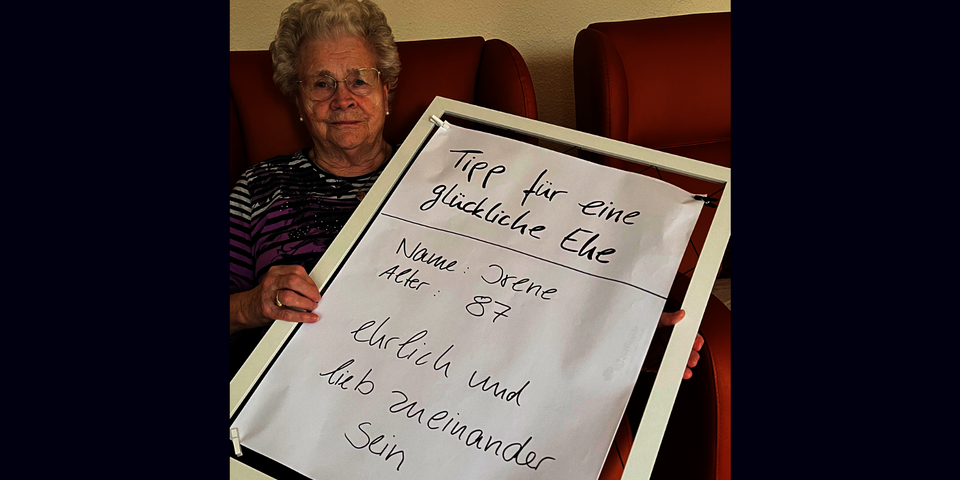 Tipp für eine
glückliche Ehe
Name: Irene
Alter: 87
ehrlich und
lieb zueinander
sein